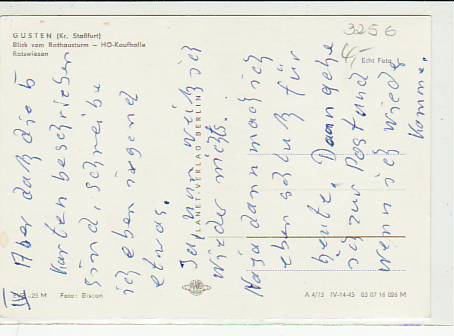 GÜSTEN (Kr. Staßfurt)
Blick vom Rathausturm — HO-Kaufhalle
Ratswiesen
3256
4,-
Echt Foto
IV
Aber daß die 5
Karten beschrieben
sind, schreibe
ich eben irgend
etwas.
Ja, nun weiß ich
wieder nichts.
Naja dann mach ich
eben schluß für
heute. Dann gehe
ich zur Post und
wenn ich wieder
komme.
PLANET-VERLAG BERLIN
25 M
Foto: Biscan
A 4/73 IV-14-45 03 07 16 026 M